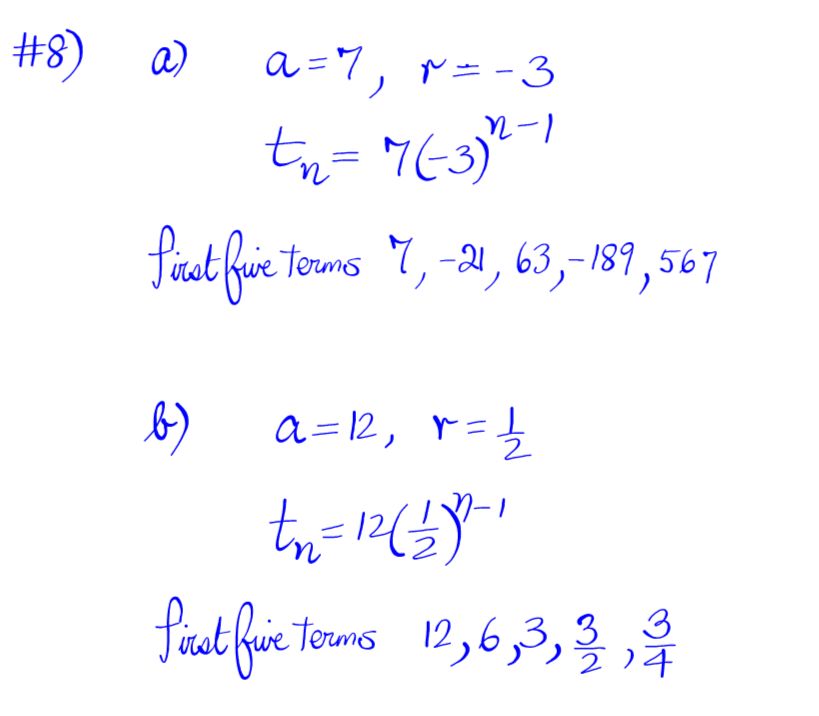 #8) a) a = 7, r = -3
tₙ = 7(-3)ⁿ⁻¹
first five terms 7, -21, 63, -189, 567
b) a = 12, r = 1/2
tₙ = 12(1/2)ⁿ⁻¹
first five terms 12, 6, 3, 3/2, 3/4